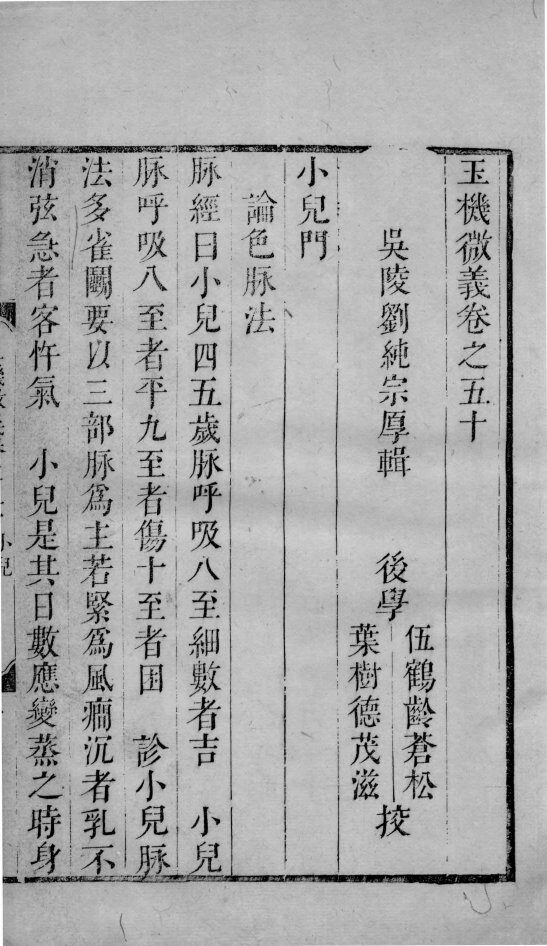 玉機微義卷之五十
吳陵劉純宗厚輯
後學
伍鶴齡蒼松
葉樹德茂滋
挍
小兒門
論色脉法
脉經曰小兒四五歲脉呼吸八至細數者吉　小兒
脉呼吸八至者平九至者傷十至者困　診小兒脉
法多雀鬭要以三部脉爲主若緊爲風癎沉者乳不
消弦急者客忤氣　小兒是其日數應變蒸之時身
小兒